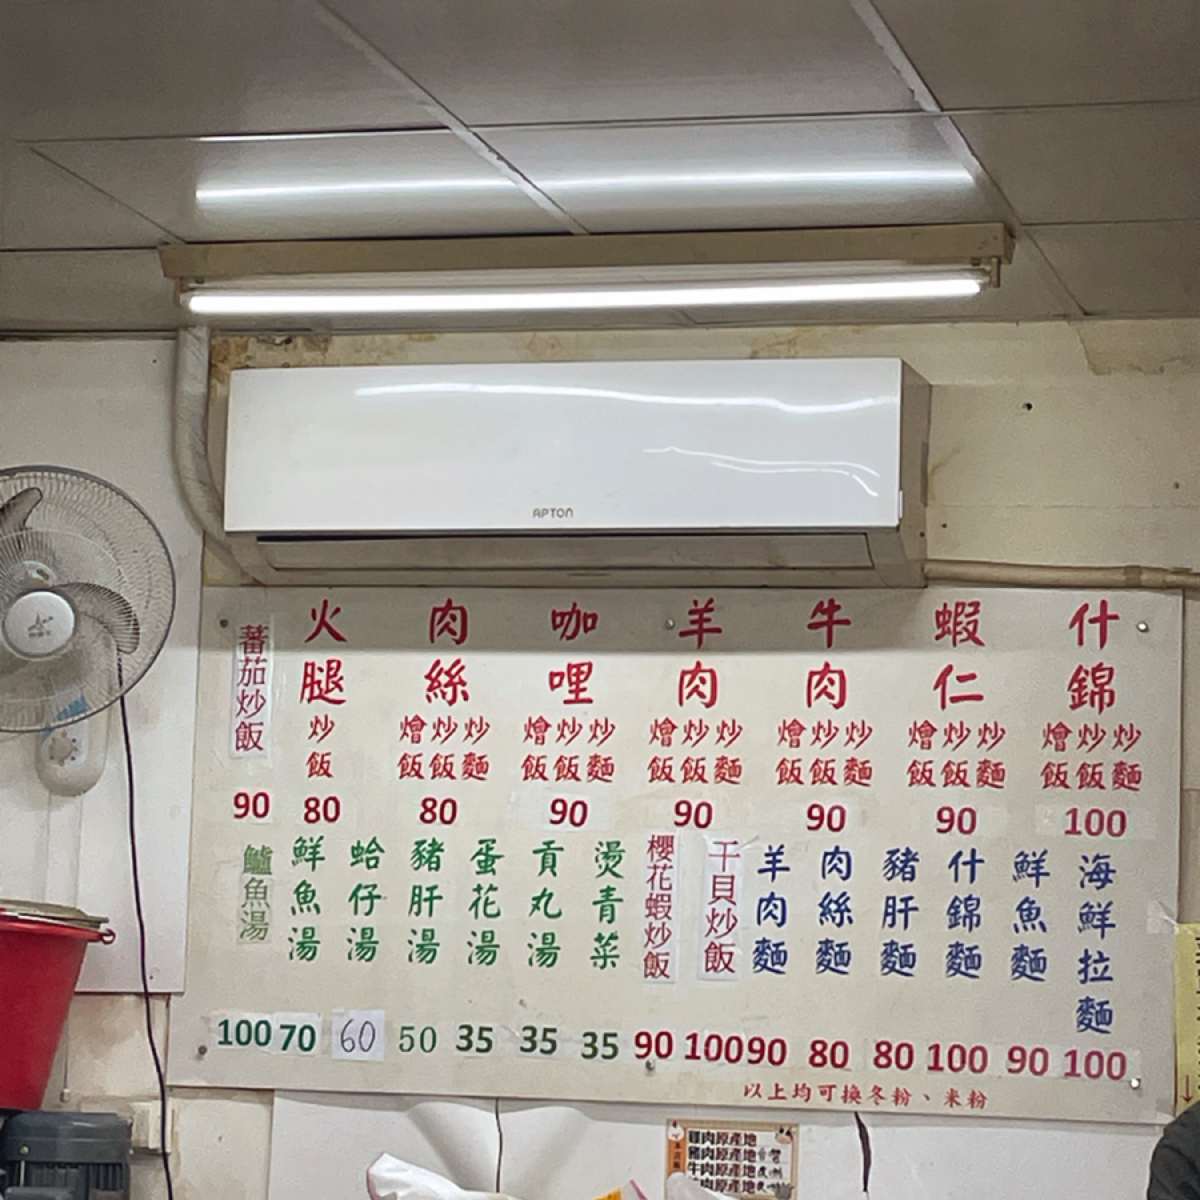 APTON
什錦
燴飯 炒飯 炒麵
100
蝦仁
燴飯 炒飯 炒麵
90
牛肉
燴飯 炒飯 炒麵
90
羊肉
燴飯 炒飯 炒麵
90
咖哩
燴飯 炒飯 炒麵
90
肉絲
燴飯 炒飯 炒麵
80
火腿
炒飯
80
蕃茄炒飯
90
海鮮拉麵
100
鮮魚麵
90
什錦麵
100
豬肝麵
80
肉絲麵
80
羊肉麵
90
干貝炒飯
100
櫻花蝦炒飯
90
燙青菜
35
貢丸湯
35
蛋花湯
35
豬肝湯
50
蛤仔湯
60
鮮魚湯
70
鱸魚湯
100
以上均可換冬粉、米粉
雞肉原產地
豬肉原產地台灣
牛肉原產地